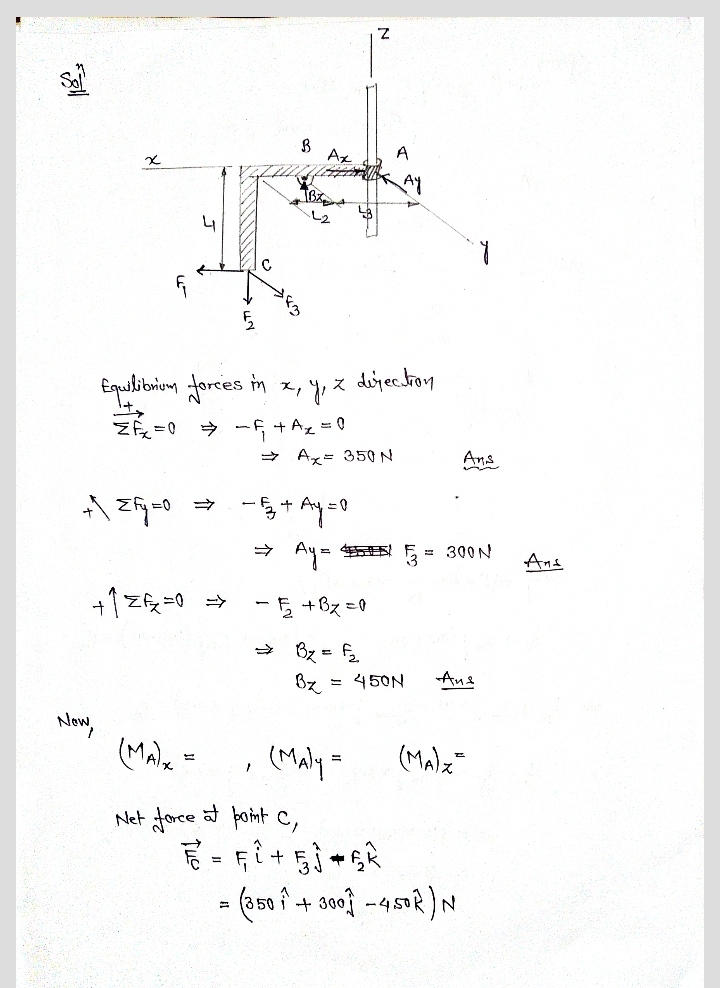 Z
Solⁿ
B Ax A
x
Ay
Bz
L1 L2 L3
y
C
F1
F2 F3
Equilibrium forces in x, y, z direction
+→ ΣFx=0 ⇒ -F1 + Ax = 0
⇒ Ax = 350 N Ans
+↖ ΣFy=0 ⇒ -F3 + Ay = 0
⇒ Ay = F3 = 300N Ans
+↑ ΣFz=0 ⇒ - F2 + Bz = 0
⇒ Bz = F2
Bz = 450N Ans
Now,
(MA)x = , (MA)y = (MA)z =
Net force at point C,
F⃗C = F1 î + F3 ĵ - F2 k̂
= (350 î + 300 ĵ - 450 k̂) N